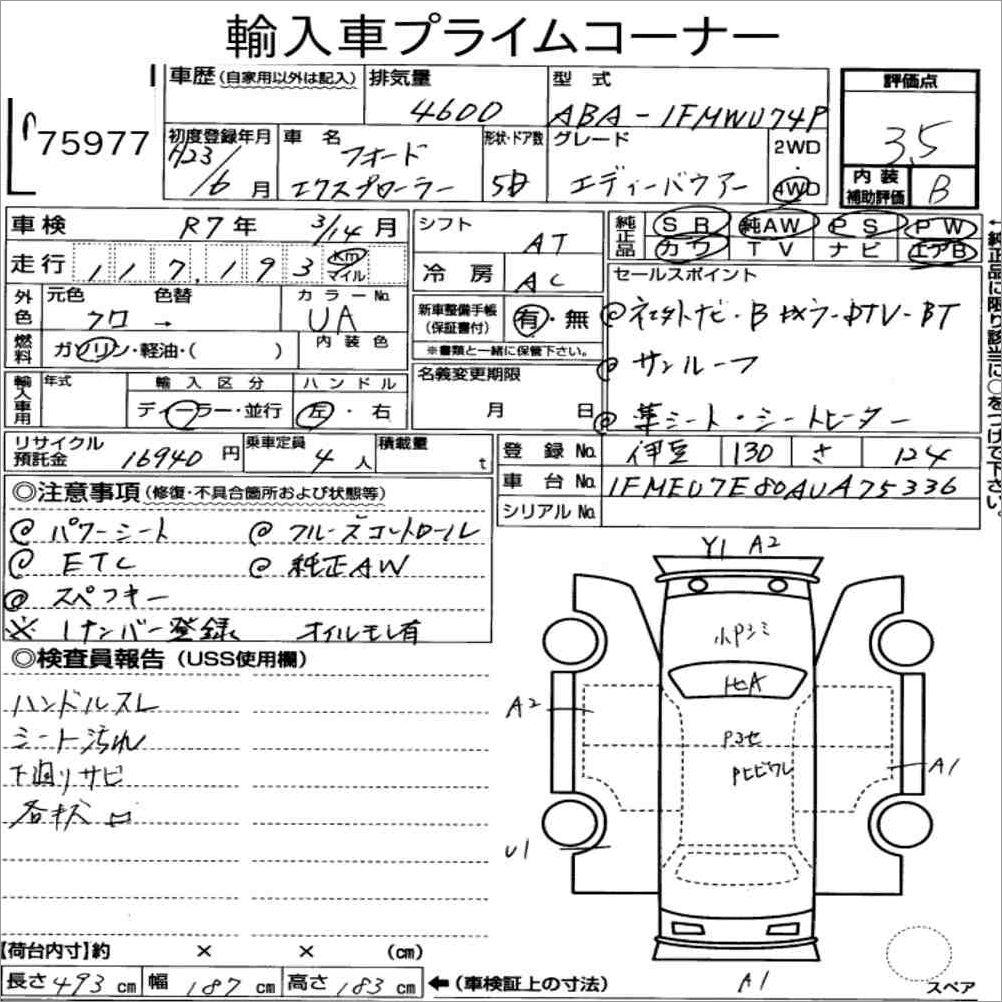 輸入車プライムコーナー
75977
車歴(自家用以外は記入)
排気量
4600
型式
ABA-1FMWU74P
評価点
3.5
初度登録年月
H23/6月
車名
フォード
エクスプローラー
形状・ドア数
5D
グレード
エディーバウアー
2WD
4WD
内装補助評価
B
車検
R7年 3/14月
走行
117,193 km マイル
シフト
AT
冷房
AC
純正品
SR 純AW PS PW
カワ TV ナビ エアB
←純正品に限り該当に○をつけて下さい。
外色
元色
色替
クロ →
カラーNo.
UA
燃料
ガソリン・軽油・( )
内装色
新車整備手帳(保証書付)
有・無
※書類と一緒に保管下さい。
セールスポイント
@社外ナビ・Bカメラ・DTV・BT
@サンルーフ
@革シート・シートヒーター
輸入車用
年式
輸入区分
ディーラー・並行
ハンドル
左・右
名義変更期限
月 日
リサイクル預託金
16940円
乗車定員
4人
積載量
t
登録No.
伊豆 130 さ 124
車台No.
1FMEU7E80AUA75336
シリアルNo.
◎注意事項(修復・不具合箇所および状態等)
@パワーシート @クルーズコントロール
@ETC @純正AW
@スペアキー
※1ナンバー登録、オイルモレ有
◎検査員報告(USS使用欄)
ハンドルスレ
シート汚れ
下廻りサビ
各キズ凹
Y1 A2
小Pシミ
地A
A2
Pコセ
Pヒビワレ
A1
U1
A1
【荷台内寸】約 × × (cm)
長さ493cm 幅187cm 高さ183cm ←(車検証上の寸法)
スペア